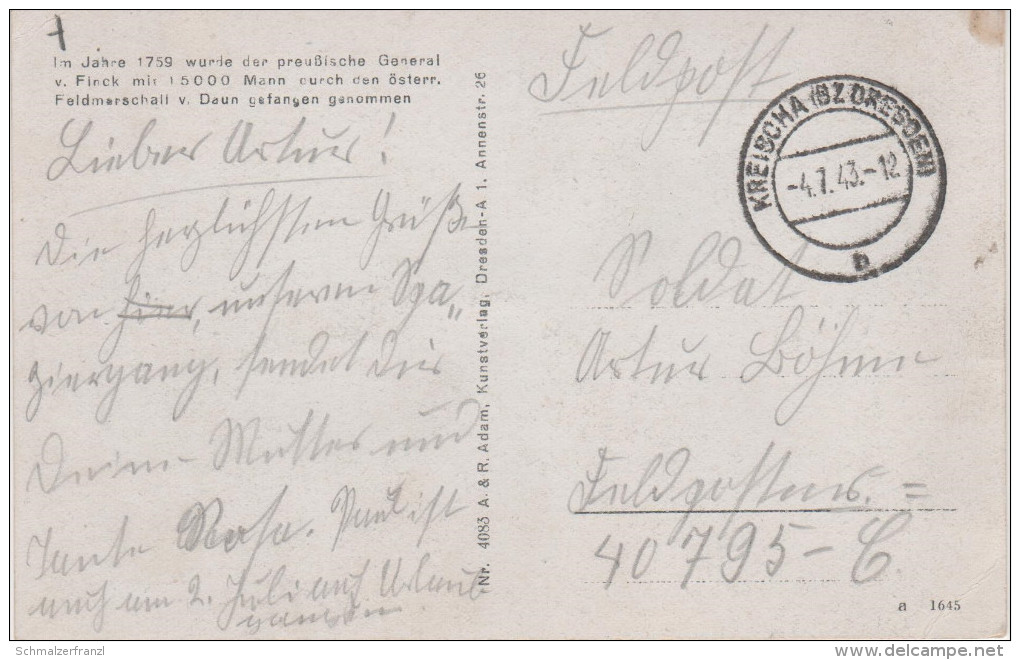 Im Jahre 1759 wurde der preußische General
v. Finck mit 15000 Mann durch den österr.
Feldmarschall v. Daun gefangen genommen
Lieber Artur!
Die herzlichsten Grüße
von hier, unserem Spa-
ziergang, sendet dir
Deine Mutter und
Tante Rosa. Paul ist
auch am 2. Juli auf Urlaub
Nr. 4083 A. & R. Adam, Kunstverlag, Dresden-A 1. Annenstr. 26
Feldpost
KREISCHA (BZ DRESDEN)
-4.7.43.-12
b
Soldat
Artur Böhme
Feldpostnr. =
40795-C.
a 1645
Schmalzerfranzl
delcampe.net